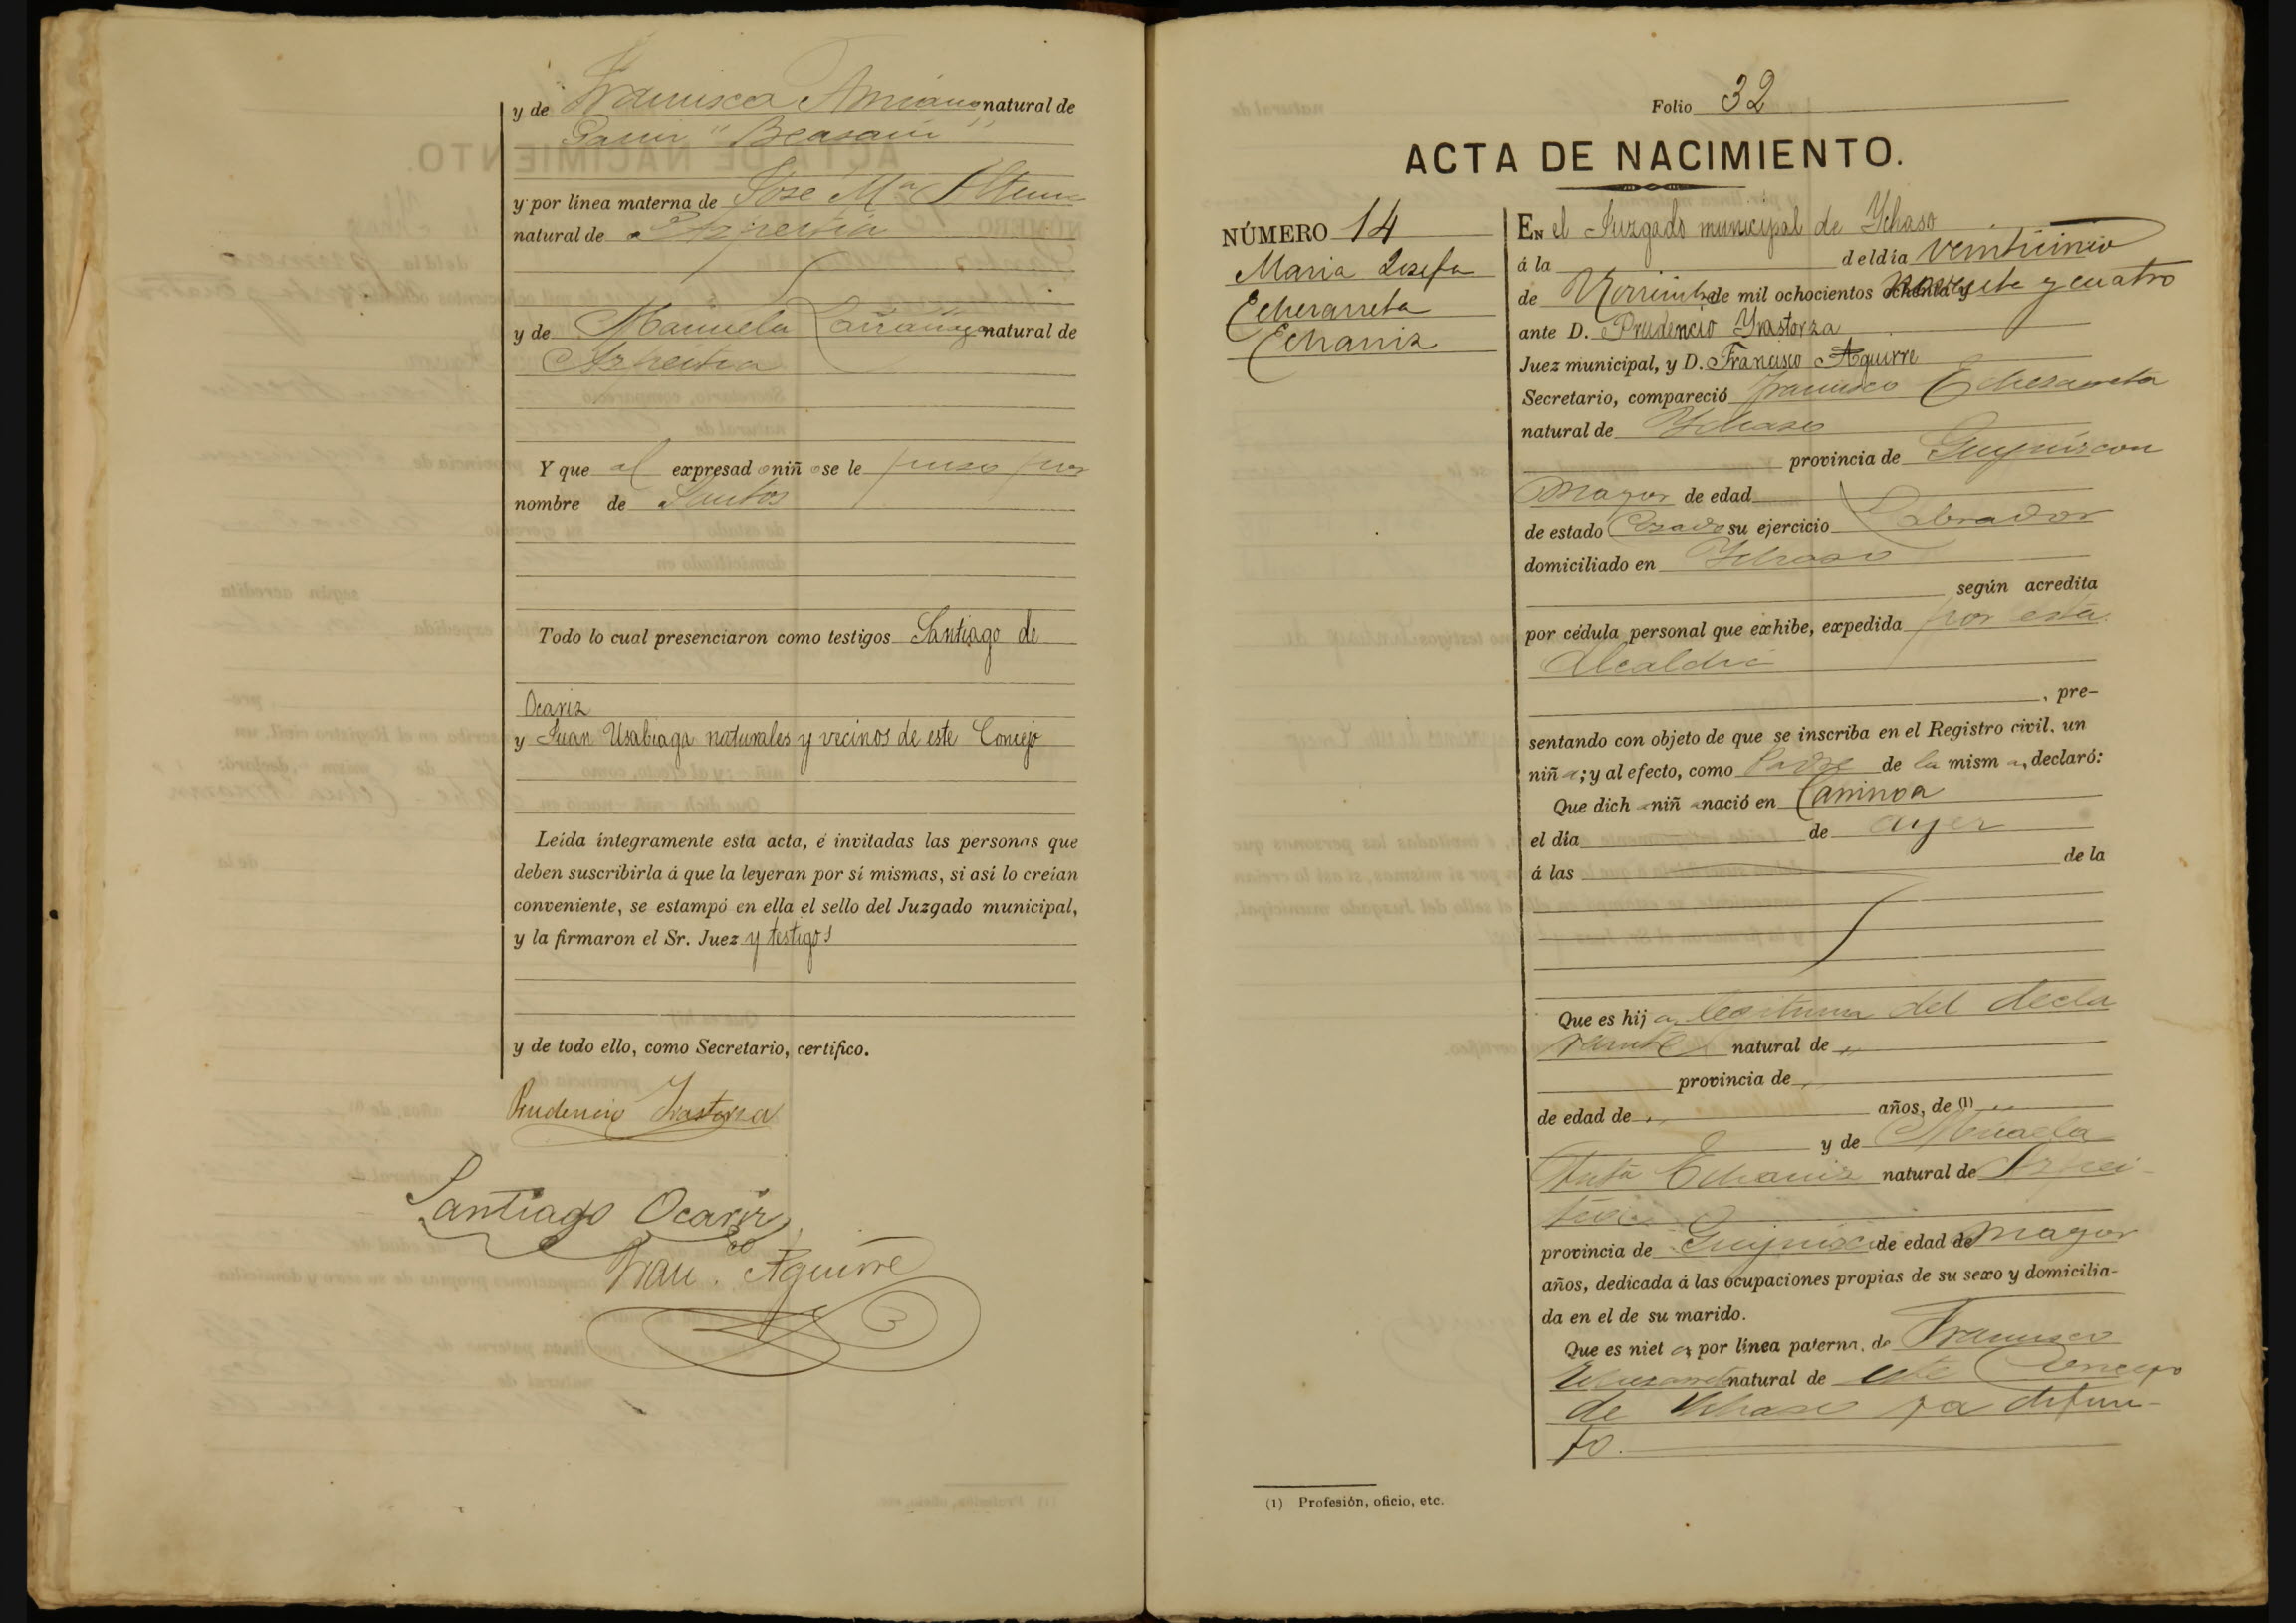 y de Francisca Amiano natural de
Gavir "Beasain"
y por línea materna de Jose Mª Altuna
natural de Azpeitia
y de Manuela Larrañaga natural de
Azpeitia
Y que al expresado niño se le puso por
nombre de Santos
Todo lo cual presenciaron como testigos Santiago de
Ocariz
y Juan Usabiaga naturales y vecinos de este Concejo
Leída íntegramente esta acta, é invitadas las personas que
deben suscribirla á que la leyeran por sí mismas, si así lo creían
conveniente, se estampó en ella el sello del Juzgado municipal,
y la firmaron el Sr. Juez y testigos
y de todo ello, como Secretario, certifico.
Prudencio Yrastorza
Santiago Ocariz
Franco. Aguirre
Folio 32
ACTA DE NACIMIENTO.
NÚMERO 14
Maria Josefa
Echezarreta
Echaniz
En el Juzgado municipal de Ychaso
á la del día veinticinco
de Noviembre de mil ochocientos ochenta y noventa y cuatro
ante D. Prudencio Yrastorza
Juez municipal, y D. Francisco Aguirre
Secretario, compareció Francisco Echezarreta
natural de Ychaso
provincia de Guipúzcoa
mayor de edad
de estado Casado su ejercicio Labrador
domiciliado en Ychaso
según acredita
por cédula personal que exhibe, expedida por esta
Alcaldia
, pre-
sentando con objeto de que se inscriba en el Registro civil, un
niña; y al efecto, como Padre de la misma, declaró:
Que dicha niña nació en Caminoa
el día de ayer
á las de la
Que es hija legitima del decla
rante natural de "
provincia de "
de edad de " años, de (1) "
y de Micaela
Antª Echaniz natural de Azpei-
tia
provincia de Guipúzcoa de edad de mayor
años, dedicada á las ocupaciones propias de su sexo y domicilia-
da en el de su marido.
Que es nieta por línea paterna, de Francisco
Echezarreta natural de este Concejo
de Ychaso ya difun-
to.
(1) Profesión, oficio, etc.